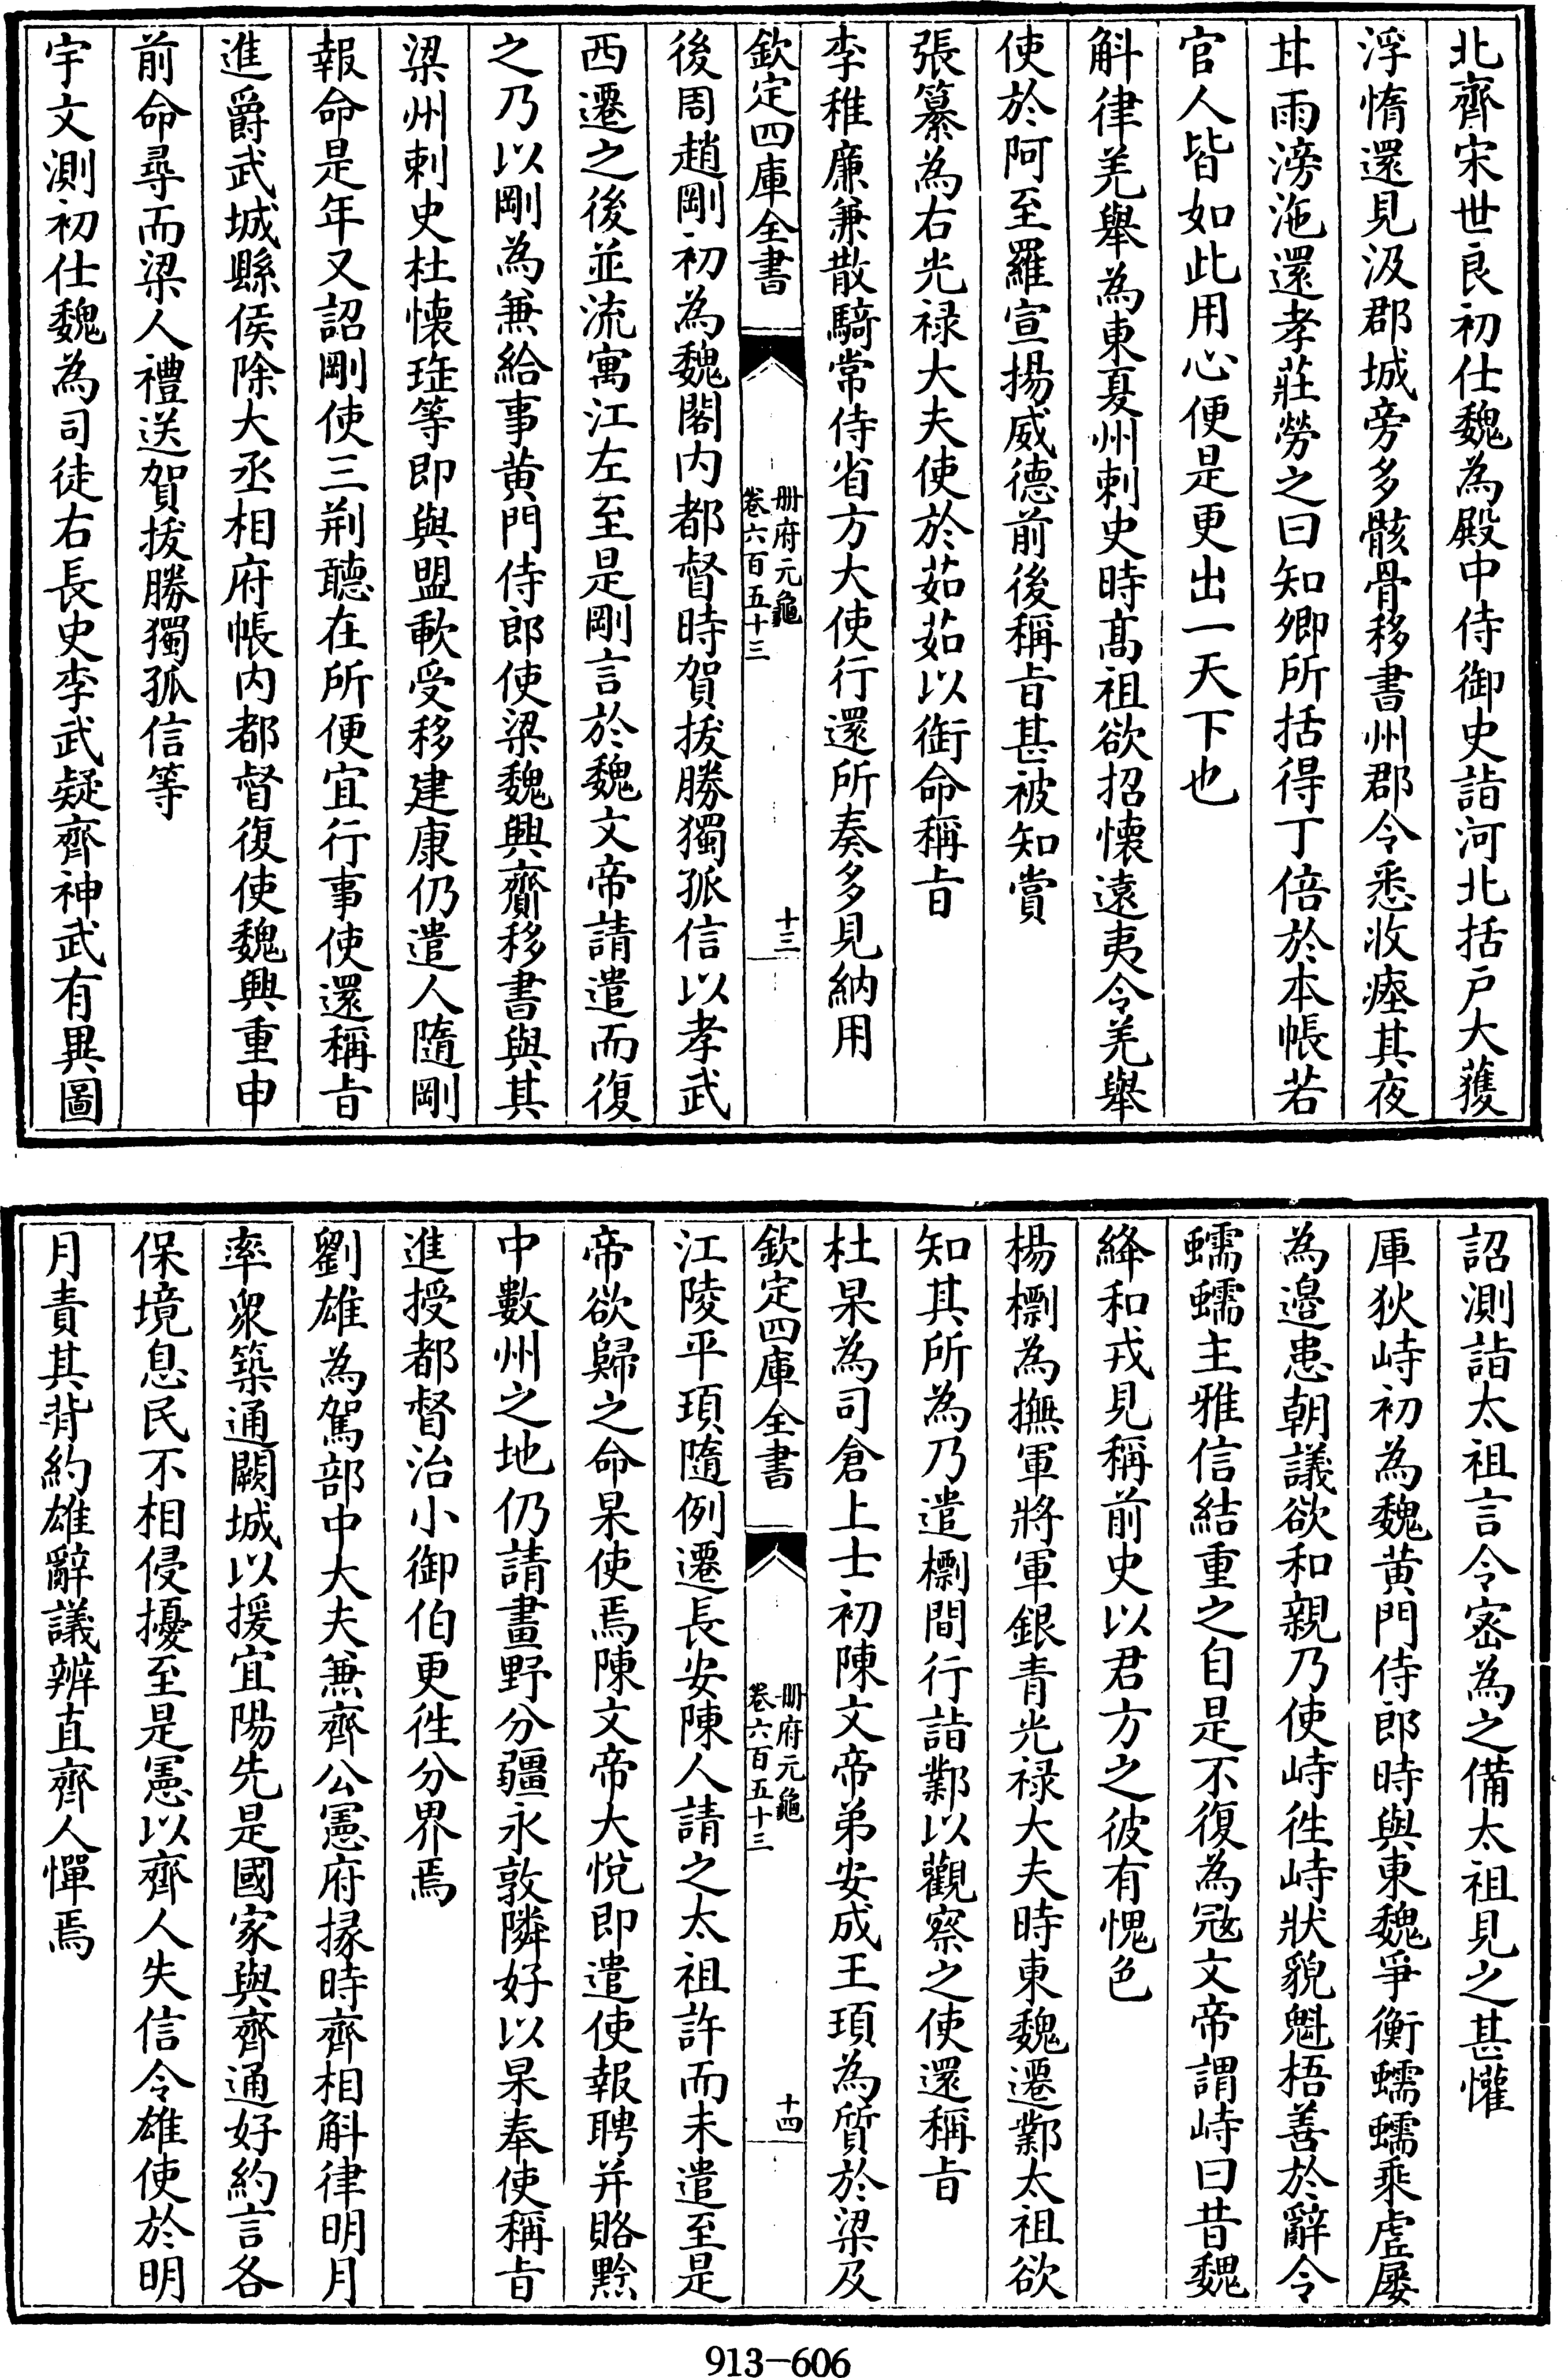 北齊宋世良初仕魏為殿中侍御史詣河北括戶大獲
浮惰還見汲郡城旁多骸骨移書州郡令悉收瘞其夜
甘雨滂沲還孝莊勞之曰知卿所括得丁倍於本帳若
官人皆如此用心便是更出一天下也
斛律羌舉為東夏州刺史時髙祖欲招懷遠夷令羌舉
使於阿至羅宣揚威德前後稱㫖甚被知賞
張纂為右光禄大夫使於茹茹以銜命稱㫖
李稚廉兼散騎常侍省方大使行還所奏多見納用
欽定四庫全書
册府元龜
卷六百五十三
十三
後周趙剛初為魏閣内都督時賀拔勝獨孤信以孝武
西遷之後並流寓江左至是剛言於魏文帝請遣而復
之乃以剛為兼給事黄門侍郎使梁魏興齎移書與其
梁州刺史杜懷珤等即與盟歃受移建康仍遣人隨剛
報命是年又詔剛使三荆聽在所便宜行事使還稱㫖
進爵武城縣侯除大丞相府帳内都督復使魏興重申
前命尋而梁人禮送賀拔勝獨孤信等
宇文測初仕魏為司徒右長史李武疑齊神武有異圖
詔測詣太祖言令密為之備太祖見之甚懽
厙狄峙初為魏黄門侍郎時與東魏爭衡蠕蠕乘虛屢
為邉患朝議欲和親乃使峙徃峙狀貌魁梧善於辭令
蠕蠕主雅信結重之自是不復為冦文帝謂峙曰昔魏
絳和戎見稱前史以君方之彼有愧色
楊檦為撫軍將軍銀青光禄大夫時東魏遷鄴太祖欲
知其所為乃遣檦間行詣鄴以觀察之使還稱㫖
杜杲為司倉上士初陳文帝弟安成王頊為質於梁及
欽定四庫全書
册府元龜
卷六百五十三
十四
江陵平頊隨例遷長安陳人請之太祖許而未遣至是
帝欲歸之命杲使焉陳文帝大悅即遣使報聘并賂黔
中數州之地仍請畫野分疆永敦隣好以杲奉使稱㫖
進授都督治小御伯更徃分界焉
劉雄為駕部中大夫兼齊公憲府掾時齊相斛律明月
率衆築通闕城以援宜陽先是國家與齊通好約言各
保境息民不相侵擾至是憲以齊人失信令雄使於明
月責其背約雄辭議辨直齊人憚焉
913-606